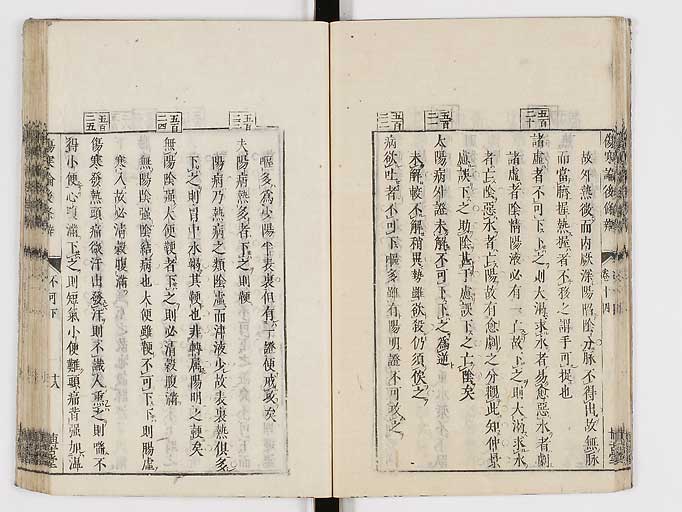 傷寒論後條辨
卷十四
故外熱後而內厥深陽陷陰
脉不得出故無脉
而當臍握熱握者不移之謂手可捉也
五百二十
諸虛者不可下下之則大渴求水者易愈惡水者劇
諸虛者陰精陽液必有一亡故下之則大渴求水
者亡陰惡水者亡陽故有愈劇之分觀此知仲景
應誤下之助陰甚于應誤下之亡陰矣
五百二一
太陽病外證未解不可下下之為逆
未解較不解稍異勢雖欲殺仍須俟之
五百二二
病欲吐者不可下嘔多雖有陽明證不可攻之
嘔多為少陽半表裏但有下證便戒攻矣
五百二三
夫陽病熱多者下之則鞕
陽病乃熱病之類陰虛而津液少故表裏熱俱多
下之則胃中水竭其鞕也非轉屬陽明之鞕矣
五百二四
無陽陰強大便鞕者下之則必清穀腹滿
無陽陰強陰結病也大便雖鞕不可下下則腸虛
寒入故必清穀腹滿
五百二五
傷寒發熱頭痛微汗出發汗則不識人熏之則喘不
得小便心腹滿下之則短氣小便難頭痛背强加溫
傷寒論後條辨
不可下